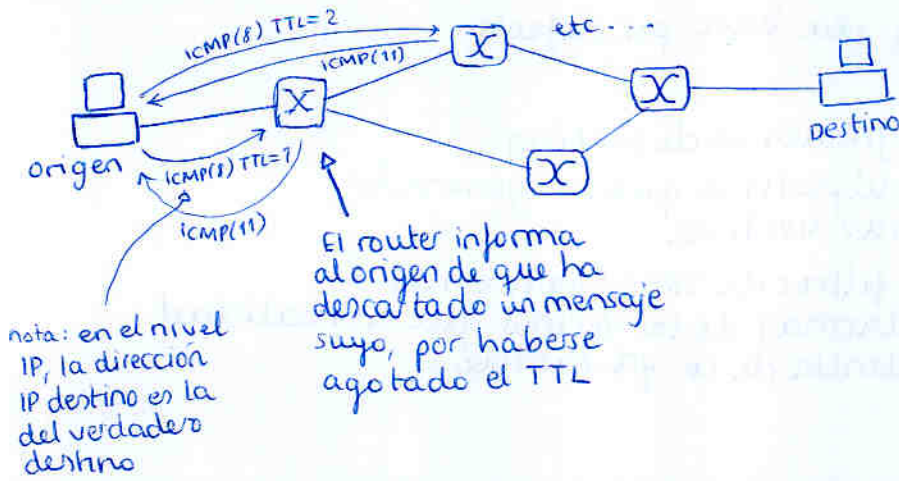 ICMP(8) TTL=2
etc....
ICMP(11)
X
X
X
X
origen
Destino
ICMP(8) TTL=1
ICMP(11)
El router informa
al origen de que ha
descartado un mensaje
suyo, por haberse
agotado el TTL
nota: en el nivel
IP, la dirección
IP destino es la
del verdadero
destino